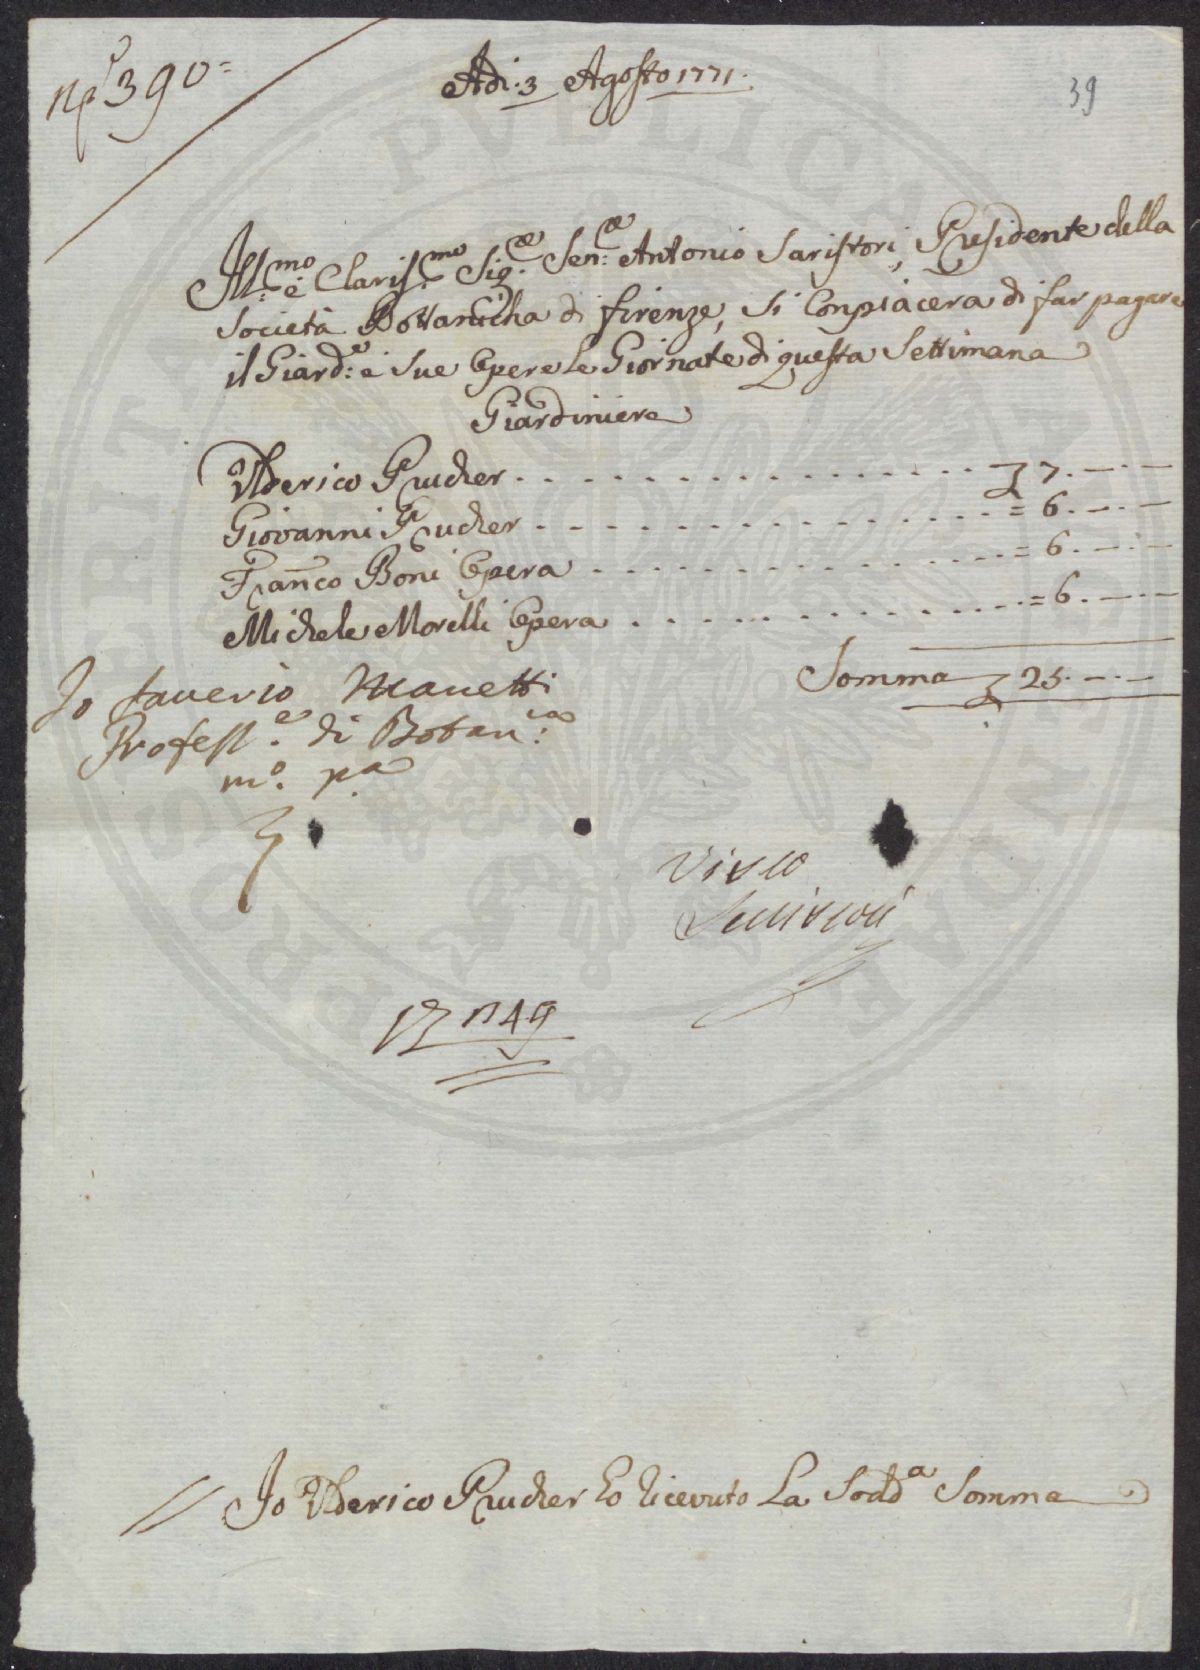 N.º 390=
Adi: 3 Agosto 1771.
39
Ill:mo e Claris:mo Sig:re Sen:re Antonio Saristori, Presidente della
Società Bottanicha di firenze, si Conpiacera di far pagare
il Giard:e e sue Opere le Giornate di questa Settimana
Giardiniere
Ulderico Prucher . . . . . . . . . . . . . . . . 7. — . —
Giovanni Prucher . . . . . . . . . . . . . . . . = 6. — . —
Franco Boni Opera . . . . . . . . . . . . . . = 6. — . —
Michele Morelli Opera . . . . . . . . . . . . = 6. — . —
Somma 25. — . —
Io Saverio Manetti
Profess.e di Botan:ca
mo. pa
Visto
Serristori
n 49
Io Ulderico Prucher ho ricevuto La Sodd.a Somma
PVBLICAE
FELICITATI
PROSPERITATI